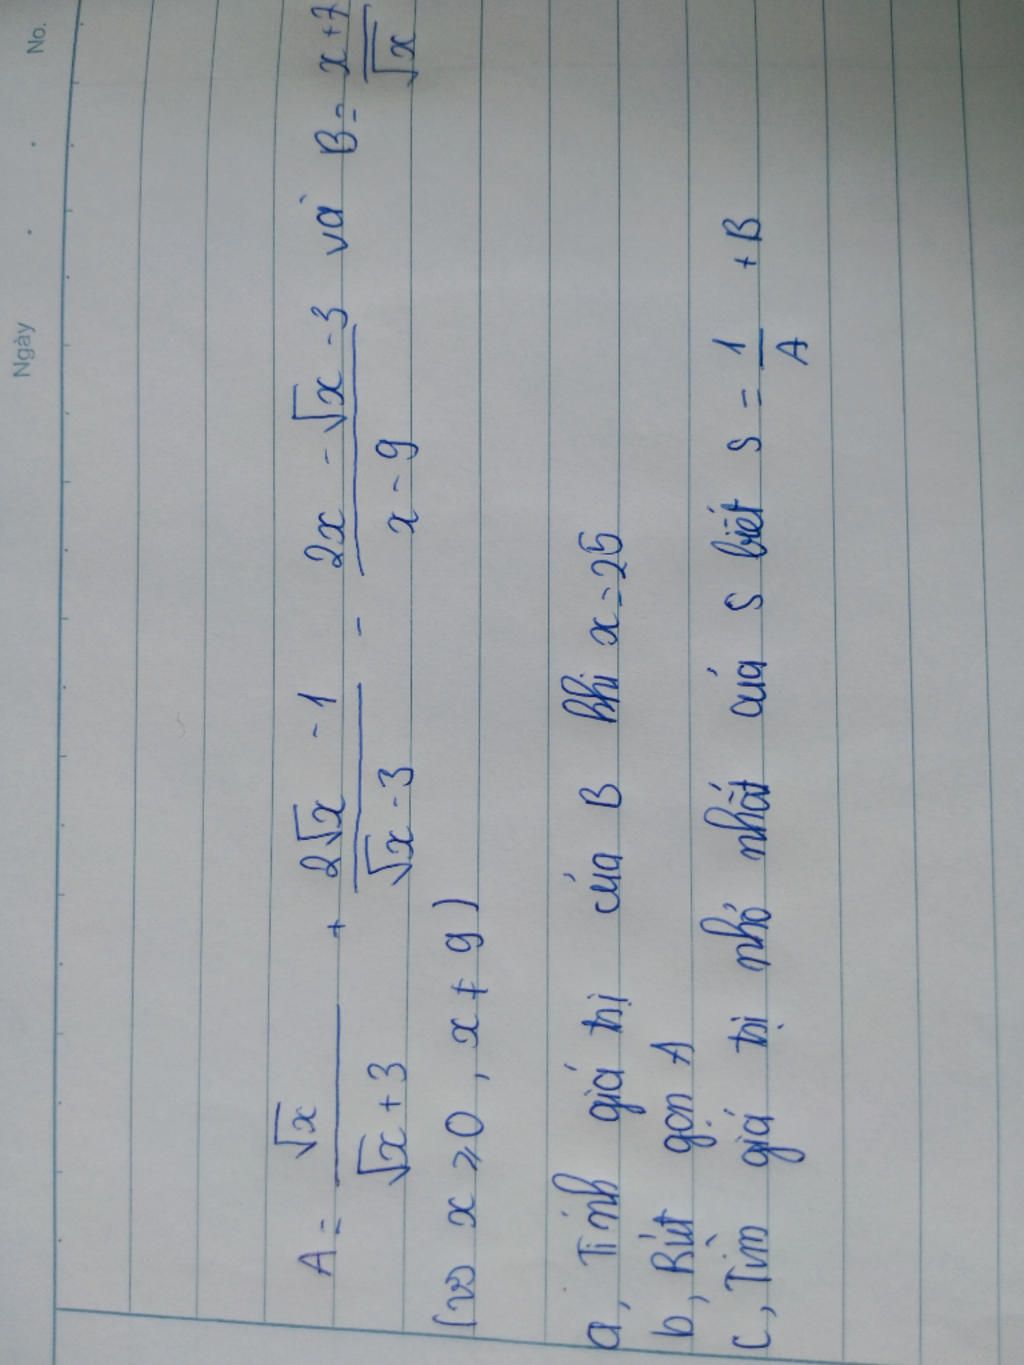 Ngày No.
A = √x / (√x + 3) + (2√x - 1) / (√x - 3) - (2x - √x - 3) / (x - 9) và B = (x + 7) / √x
(với x ≥ 0, x ≠ 9)
a, Tính giá trị của B khi x = 25
b, Rút gọn A
c, Tìm giá trị nhỏ nhất của S biết S = 1 / A + B